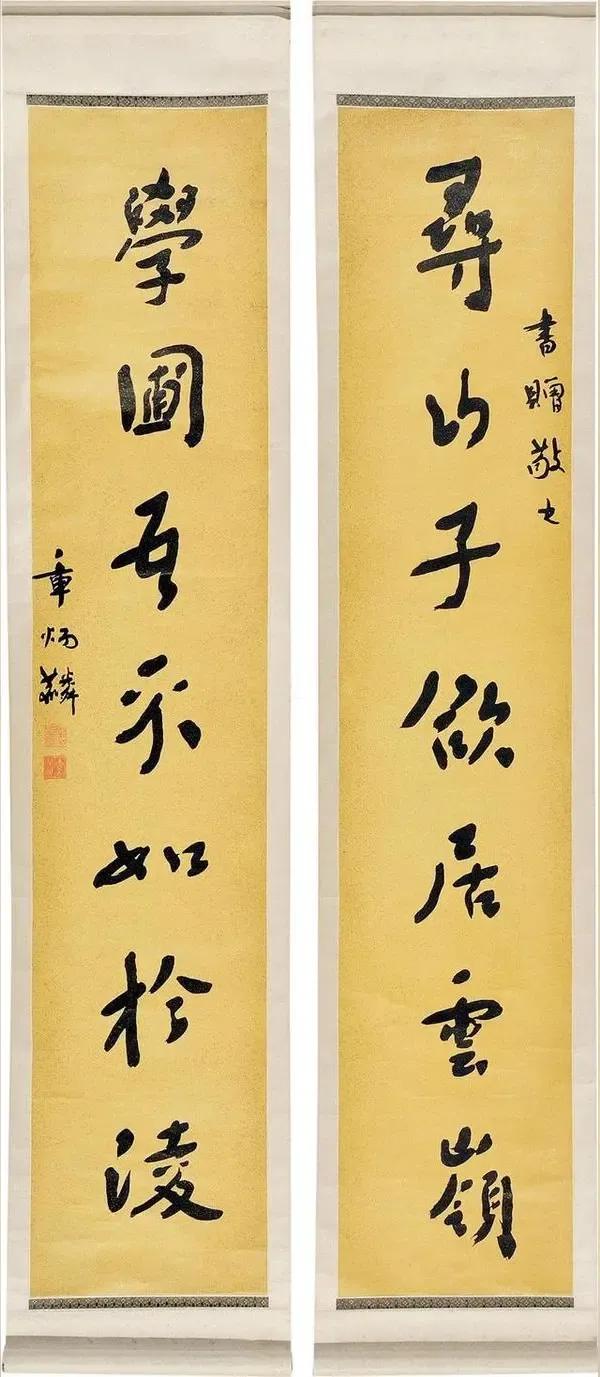 尋山子欲居雲嶺
書贈敬之
學圃吾不如扵淩
章炳麟